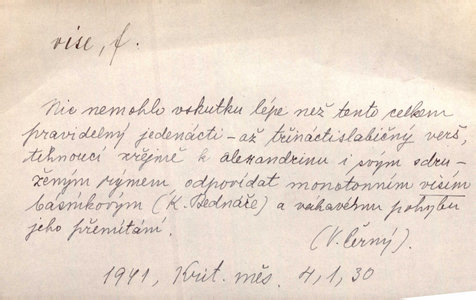 vise, f.
Nic nemohlo vskutku lépe než tento celkem
pravidelný jedenácti - až třináctislabičný verš,
tíhnoucí zřejmě k alexandrinu i svým sdru-
ženým rýmem odpovídat monotonním visím
básníkovým (K. Bednáře) a váhavému pohybu
jeho přemítání.
(V. Černý).
1941, Krit. měs. 4, 1, 30